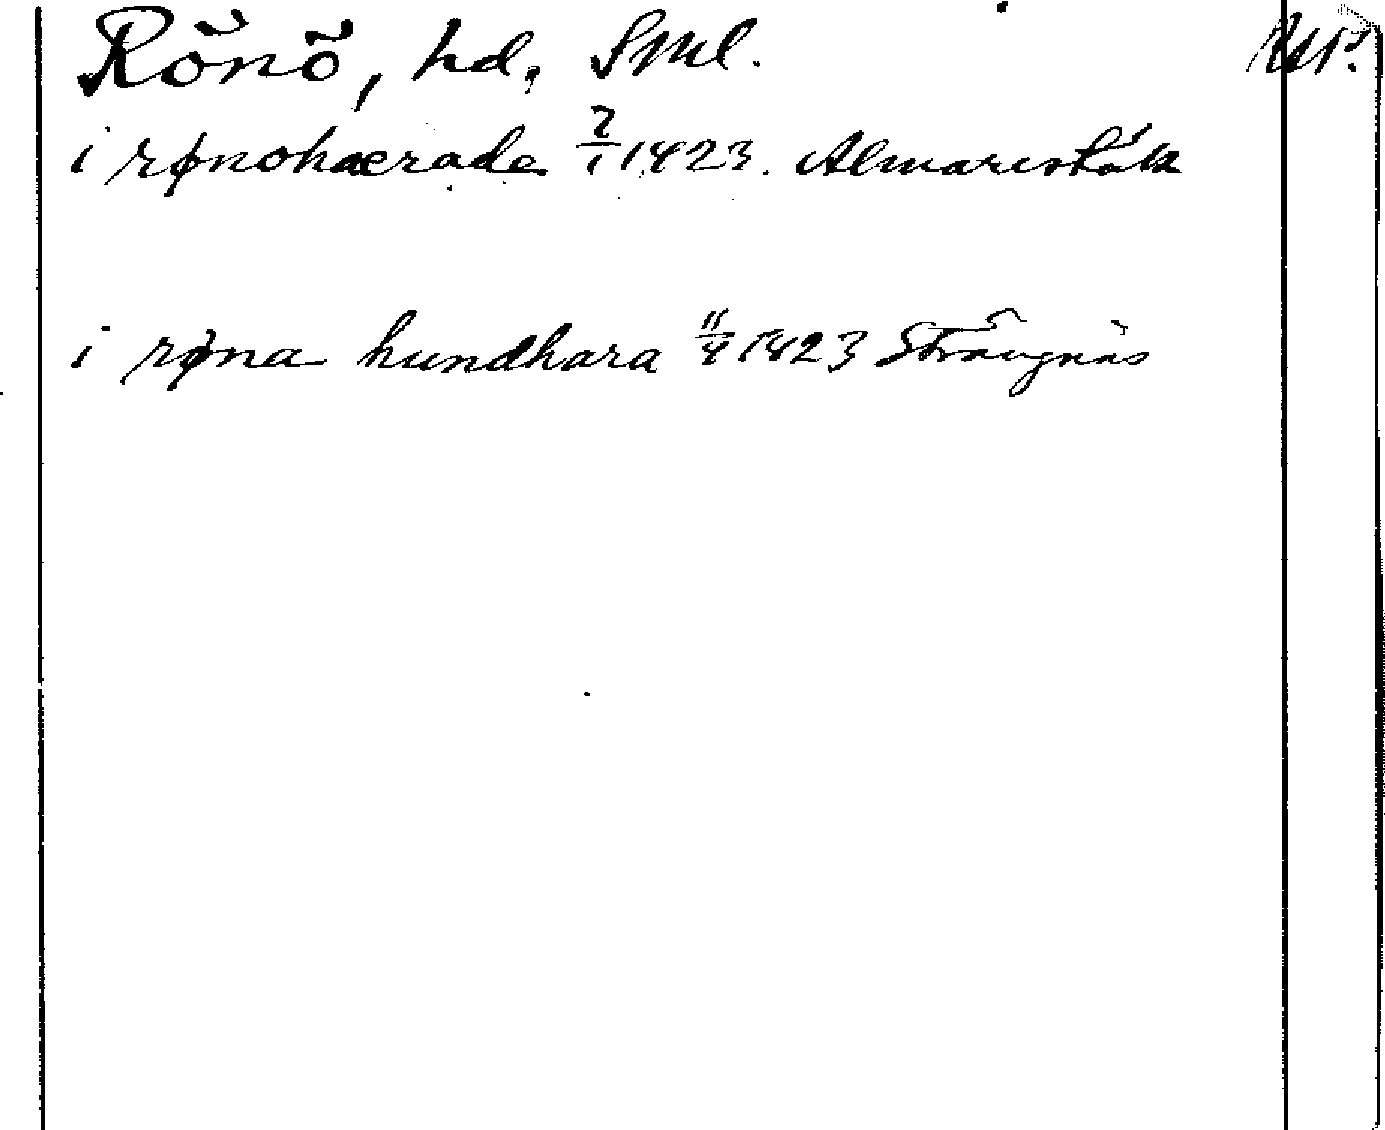 Rönö, hd. Sml.
i rønohærade 7/1 1423. Almarestäk
i røna hundhara 11/4 1423 Strängnäs